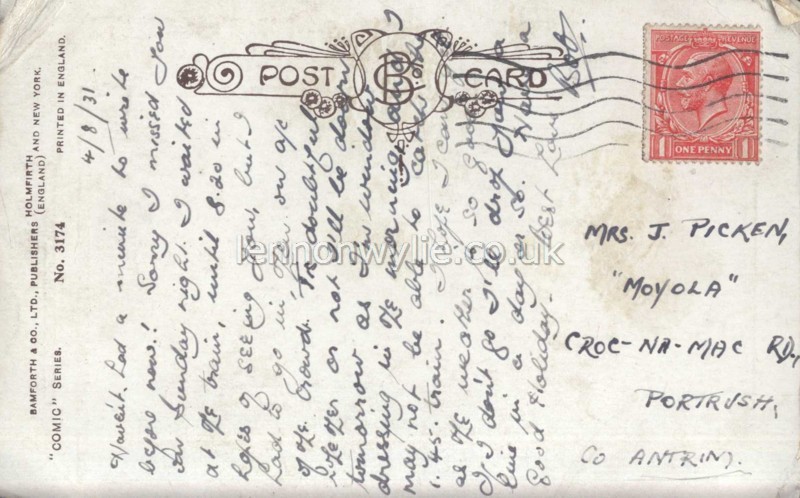 BAMFORTH & CO., LTD., PUBLISHERS HOLMFIRTH (ENGLAND) AND NEW YORK.
"COMIC" SERIES. No. 3174 PRINTED IN ENGLAND.
POST CARD
POSTAGE REVENUE
1 ONE PENNY 1
4/8/31.
Haven't had a minute to write
before now! Sorry I missed you
on Sunday night. I waited
at the train, until 8.20 in
hopes of seeing you, but I
had to go in then on a/c
of the crowd. Tis doubtful
whether or not I'll be down
tomorrow as I'm window
dressing in the morning and I
may not be able to get the
1.45. train. I hope I can
as the weather is so good.
If I don't go I'll drop you a
line in a day or so. Have a
good Holiday. Best Love
MRS. J. PICKEN,
"MOYOLA"
CROC-NA-MAC RD.,
PORTRUSH,
CO ANTRIM.
lennonwylie.co.uk